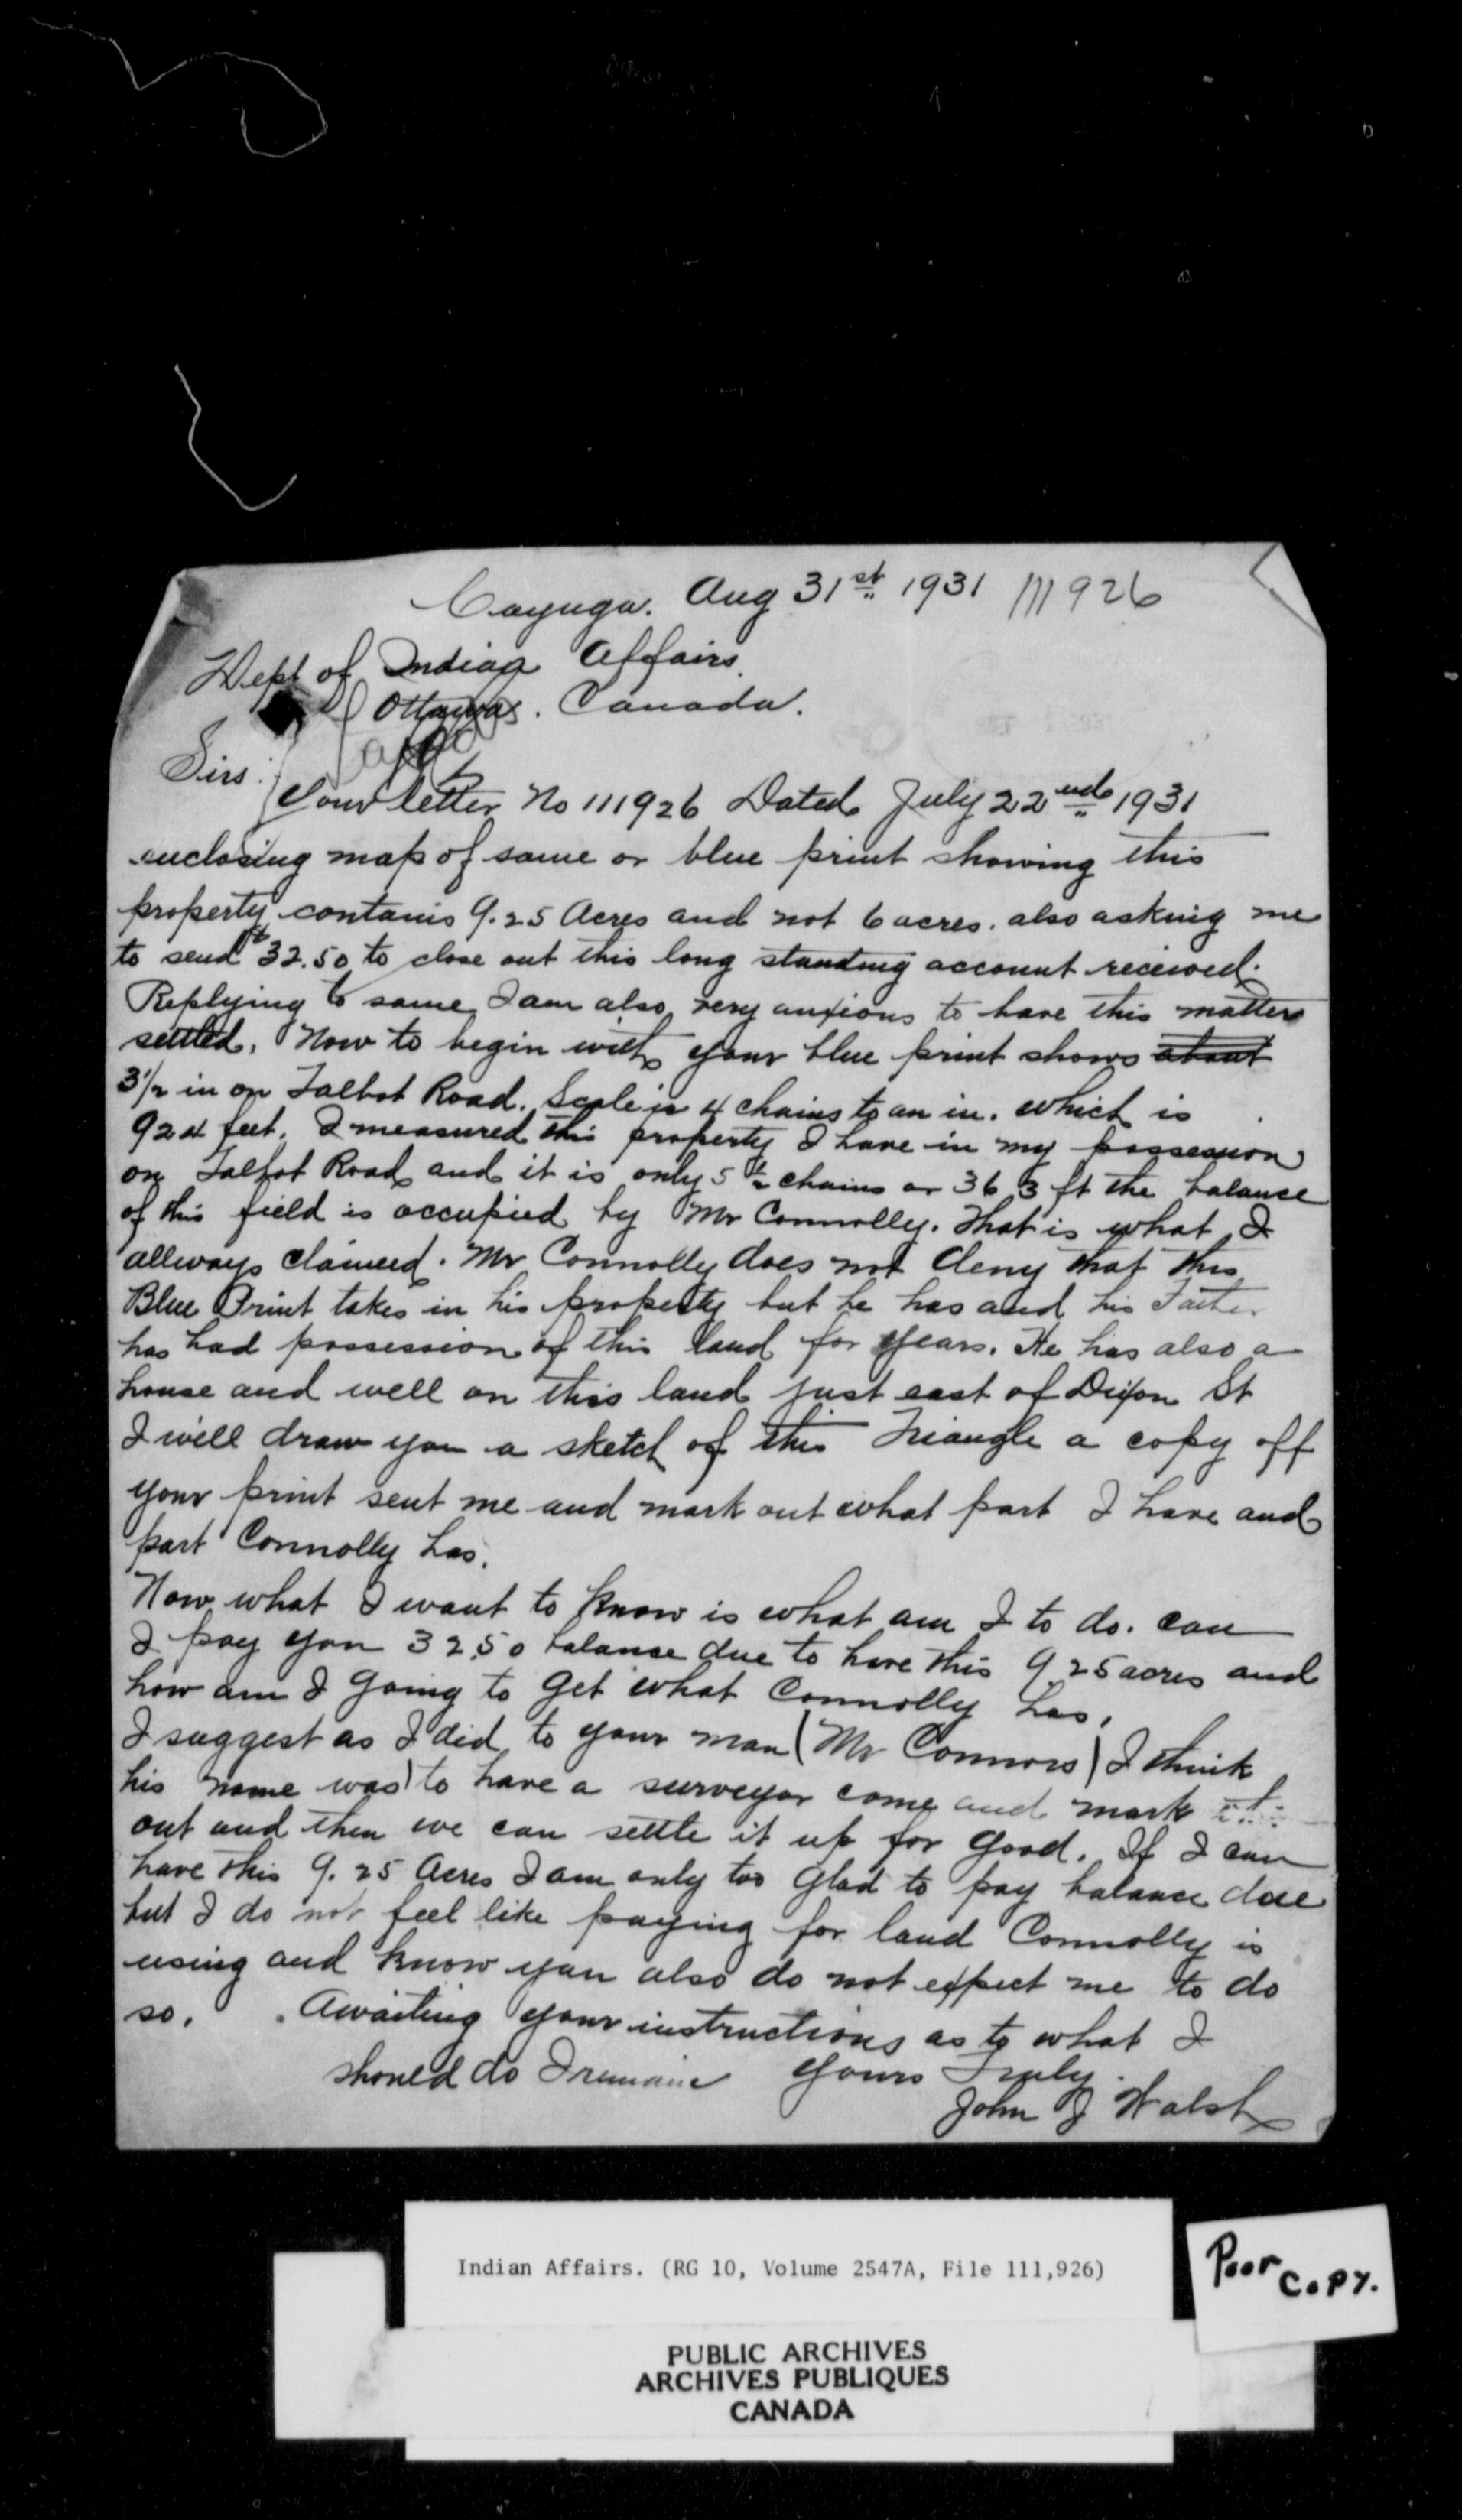 Cayuga. Aug 31st 1931 111926
Dept of Indian Affairs.
Ottawa. Canada.
Sirs:
Your letter No 111926 Dated July 22nd 1931
enclosing map of same or blue print showing this
property contains 9.25 Acres and not 6 acres. also asking me
to send $32.50 to close out this long standing account received.
Replying to same I am also very anxious to have this matter
settled. Now to begin with your blue print shows about
3½ in on Talbot Road. Scale is 4 chains to an in. which is
924 feet. I measured this property I have in my possession
on Talbot Road and it is only 5½ chains or 363 ft the balance
of this field is occupied by Mr Connolly. That is what I
allways claimed. Mr Connolly does not deny that this
Blue Print takes in his property but he has and his Father
has had possession of this land for years. He has also a
house and well on this land just east of Dixon St
I will draw you a sketch of this Triangle a copy off
your print sent me and mark out what part I have and
part Connolly has.
Now what I want to know is what am I to do. can
I pay you 32.50 balance due to have this 9.25 acres and
how am I going to get what Connolly has.
I suggest as I did to your man (Mr Connors) I think
his name was) to have a surveyor come and mark it
out and then we can settle it up for good. If I can
have this 9.25 Acres I am only too glad to pay balance due
but I do not feel like paying for land Connolly is
using and know you also do not expect me to do
so. Awaiting your instructions as to what I
should do I remain Yours Truly.
John J Walsh
Indian Affairs. (RG 10, Volume 2547A, File 111,926)
Poor
Copy.
PUBLIC ARCHIVES
ARCHIVES PUBLIQUES
CANADA